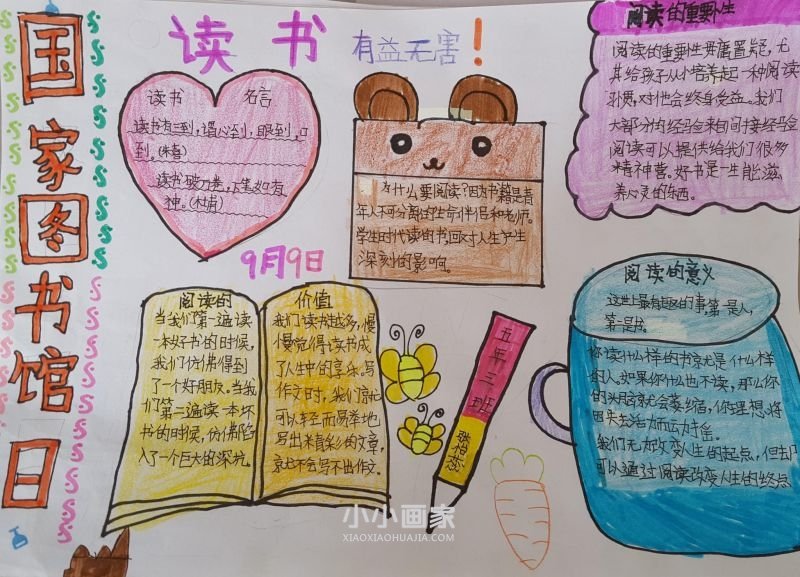 国家图书馆日
读书
有益无害！
读书 名言
读书有三到，谓心到，眼到，口
到。（朱熹）
读书破万卷，下笔如有
神。（杜甫）
9月9日
为什么要阅读？因为书籍是青
年人不可分离的生命伴侣和老师。
学生时代读的书，回对人生产生
深刻的影响。
阅读的重要生
阅读的重要生毋庸置疑，尤
其给孩子从小培养起一种阅读
习惯，对他会终身受益。我们
大部分的经验来自间接经验
阅读可以提供给我们很多
精神营。好书是一生能滋
养心灵的东西。
阅读的 价值
当我们第一遍读
一本好书的时候，
我们仿佛得到
了一个好朋友。当我
们第二遍读一本坏
书的时候，仿佛陷
入了一个巨大的深坑。
我们读书越多，慢
慢觉得读书成
了人生中的享乐。写
作文时，我们就
可以轻而易举地
写出精彩的文章，
就不会写不出作文。
五年三班
阅读的意义
这世上最有趣的事，第一是人，
第一是书。
你读什么样的书就是什么样
的人，如果你什么也不读，那么你
的头脑就会萎缩，你理想将
因失去活力而动摇。
我们无力改变人生的起点，但去
可以通过阅读改变人生的终点
小小画家
XIAOXIAOHUAJIA.COM